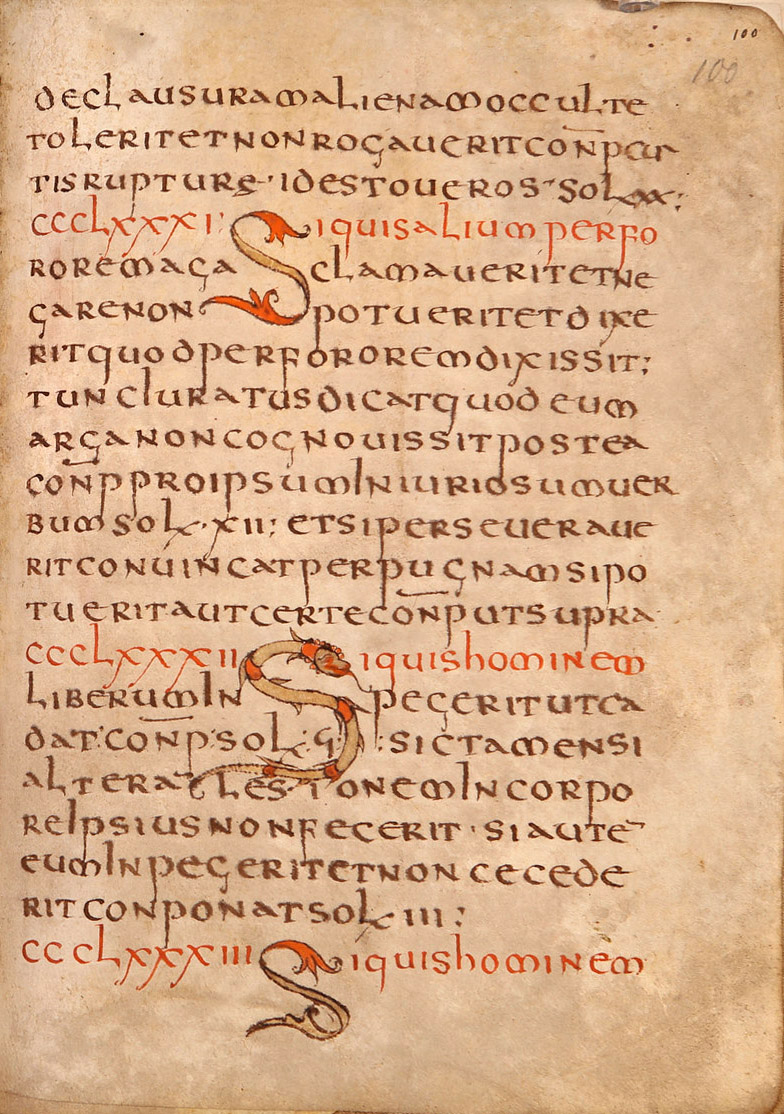 100
100
declausuram alienam occulte
tolerit et non rogauerit conpcur
tis rupture· id est oueros· sol xx:
CCCLXXXI· Si quis alium per fo
rore maga S clamauerit et ne
gare non potuerit et dixe
rit quod per forore mdixissit;
tunc Iuratus dicat quod eum
arga non cognouissit postea
con̅p pro ipsum Iniuriosum uer
bum sol· XII; et si perseueraue
rit conuincat per pugnam si po
tuerit aut certe con̅p ut supra
CCCLXXXII Si quis hominem
liberum In pegerit ut ca
dat· con̅p· sol· :· sic tamen si
altera lesionem In corpo
re Ipsius non fecerit · si aute̅
eum In pegerit et non cecede
rit conponat sol III;
CCCLXXXIII Si quis hominem